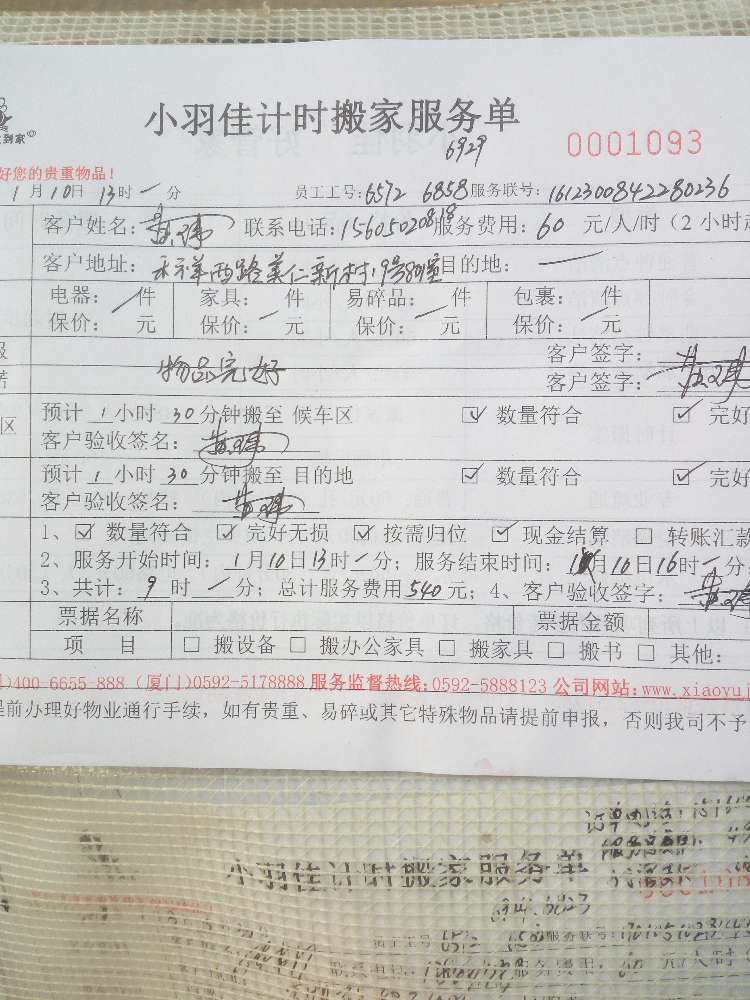 小羽佳计时搬家服务单
6929
0001093
到家
好您的贵重物品！
1月10日13时一分 员工工号：6572 6858 服务联号：1612300842280236
客户姓名： 联系电话：15605020818 服务费用：60 元/人/时（2 小时起
客户地址： 禾祥西路美仁新村 目的地：
电器： 件 家具： 件 易碎品： 件 包裹： 件
保价： 元 保价： 元 保价： 元 保价： 元
客户签字：
物品完好
客户签字：
区 预计 1 小时 30 分钟搬至 候车区 ☑ 数量符合 ☑ 完好
客户验收签名：
预计 1 小时 30 分钟搬至 目的地 ☑ 数量符合 ☑ 完好
客户验收签名：
1、☑ 数量符合 ☑ 完好无损 ☑ 按需归位 ☑ 现金结算 □ 转账汇款
2、服务开始时间：1月10日13时一分；服务结束时间： 月10日16时一分
3、共计：9 时 一分；总计服务费用540元；4、客户验收签字：
票据名称 票据金额
项 目 □ 搬设备 □ 搬办公家具 □ 搬家具 □ 搬书 □ 其他：
)400-6655-888 (厦门)0592-5178888 服务监督热线：0592-5888123 公司网站：www.xiaoyuj
提前办理好物业通行手续，如有贵重、易碎或其它特殊物品请提前申报，否则我司不予
小羽佳计时搬家服务单